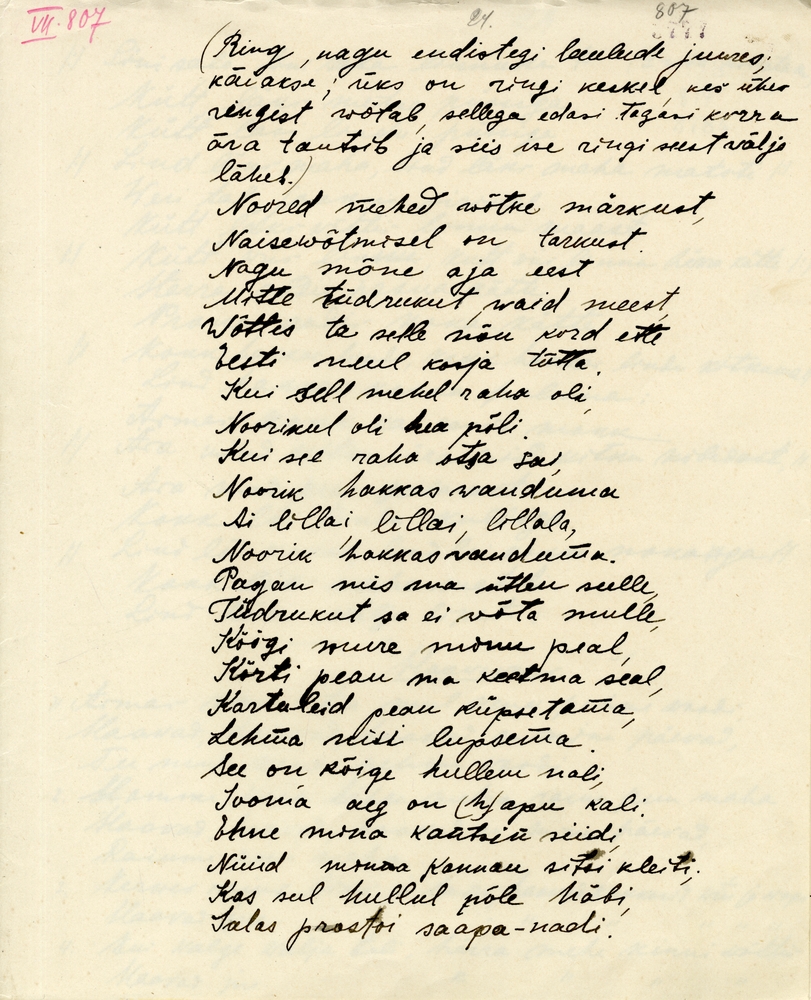 VII. 807
24.
807
(Ring, nagu endistegi laulude juures,
käiakse; üks on ringi keskel, kes ühe
ringist wõtab, sellega edasi tagasi korra
ära tantsib ja siis ise ringi seest välja
läheb.)
Noored mehed wõtke märkust,
Naisewõtmisel on tarkust.
Nagu mõne aja eest
Mitte tüdrukut, waid meest,
Wõttis ta selle nõu kord ette
Eesti neul kosja tõtta.
Kui sell mehel raha oli,
Noorikul oli hea põli.
Kui see raha otsa sai,
Noorik hakkas wanduma
Ai lillai lillai, lillala,
Noorik hakkas vanduma.
Pagan mis ma ütlen sulle,
Tüdrukut sa ei võta mulle,
Köögi mure minu peal,
Körti pean ma keetma seal,
Kartuleid pean küpsetama,
Lehma nisi lüpsema.
See on kõige hullem nali,
Sooma aeg on (h)apu kali.
Ehne mina kantsin siidi,
Nüüd minna kannan sitsi kleiti;
Kas sul hullul põle häbi,
Salas prostoi saapa-nadi.